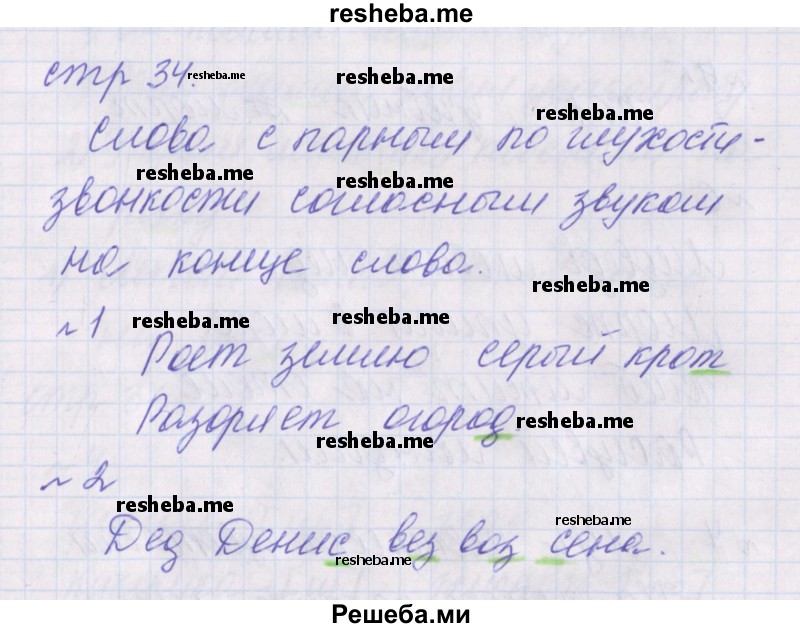 resheba.me
стр 34. resheba.me resheba.me
resheba.me
Слова с парным по глухости-
resheba.me resheba.me
звонкости согласным звуком
на конце слова.
resheba.me
№1 resheba.me resheba.me
Роет землю серый крот
Разоряет огород resheba.me
resheba.me
№2
resheba.me
Дед Денис вез воз сена.
resheba.me
resheba.me
Решеба.ми